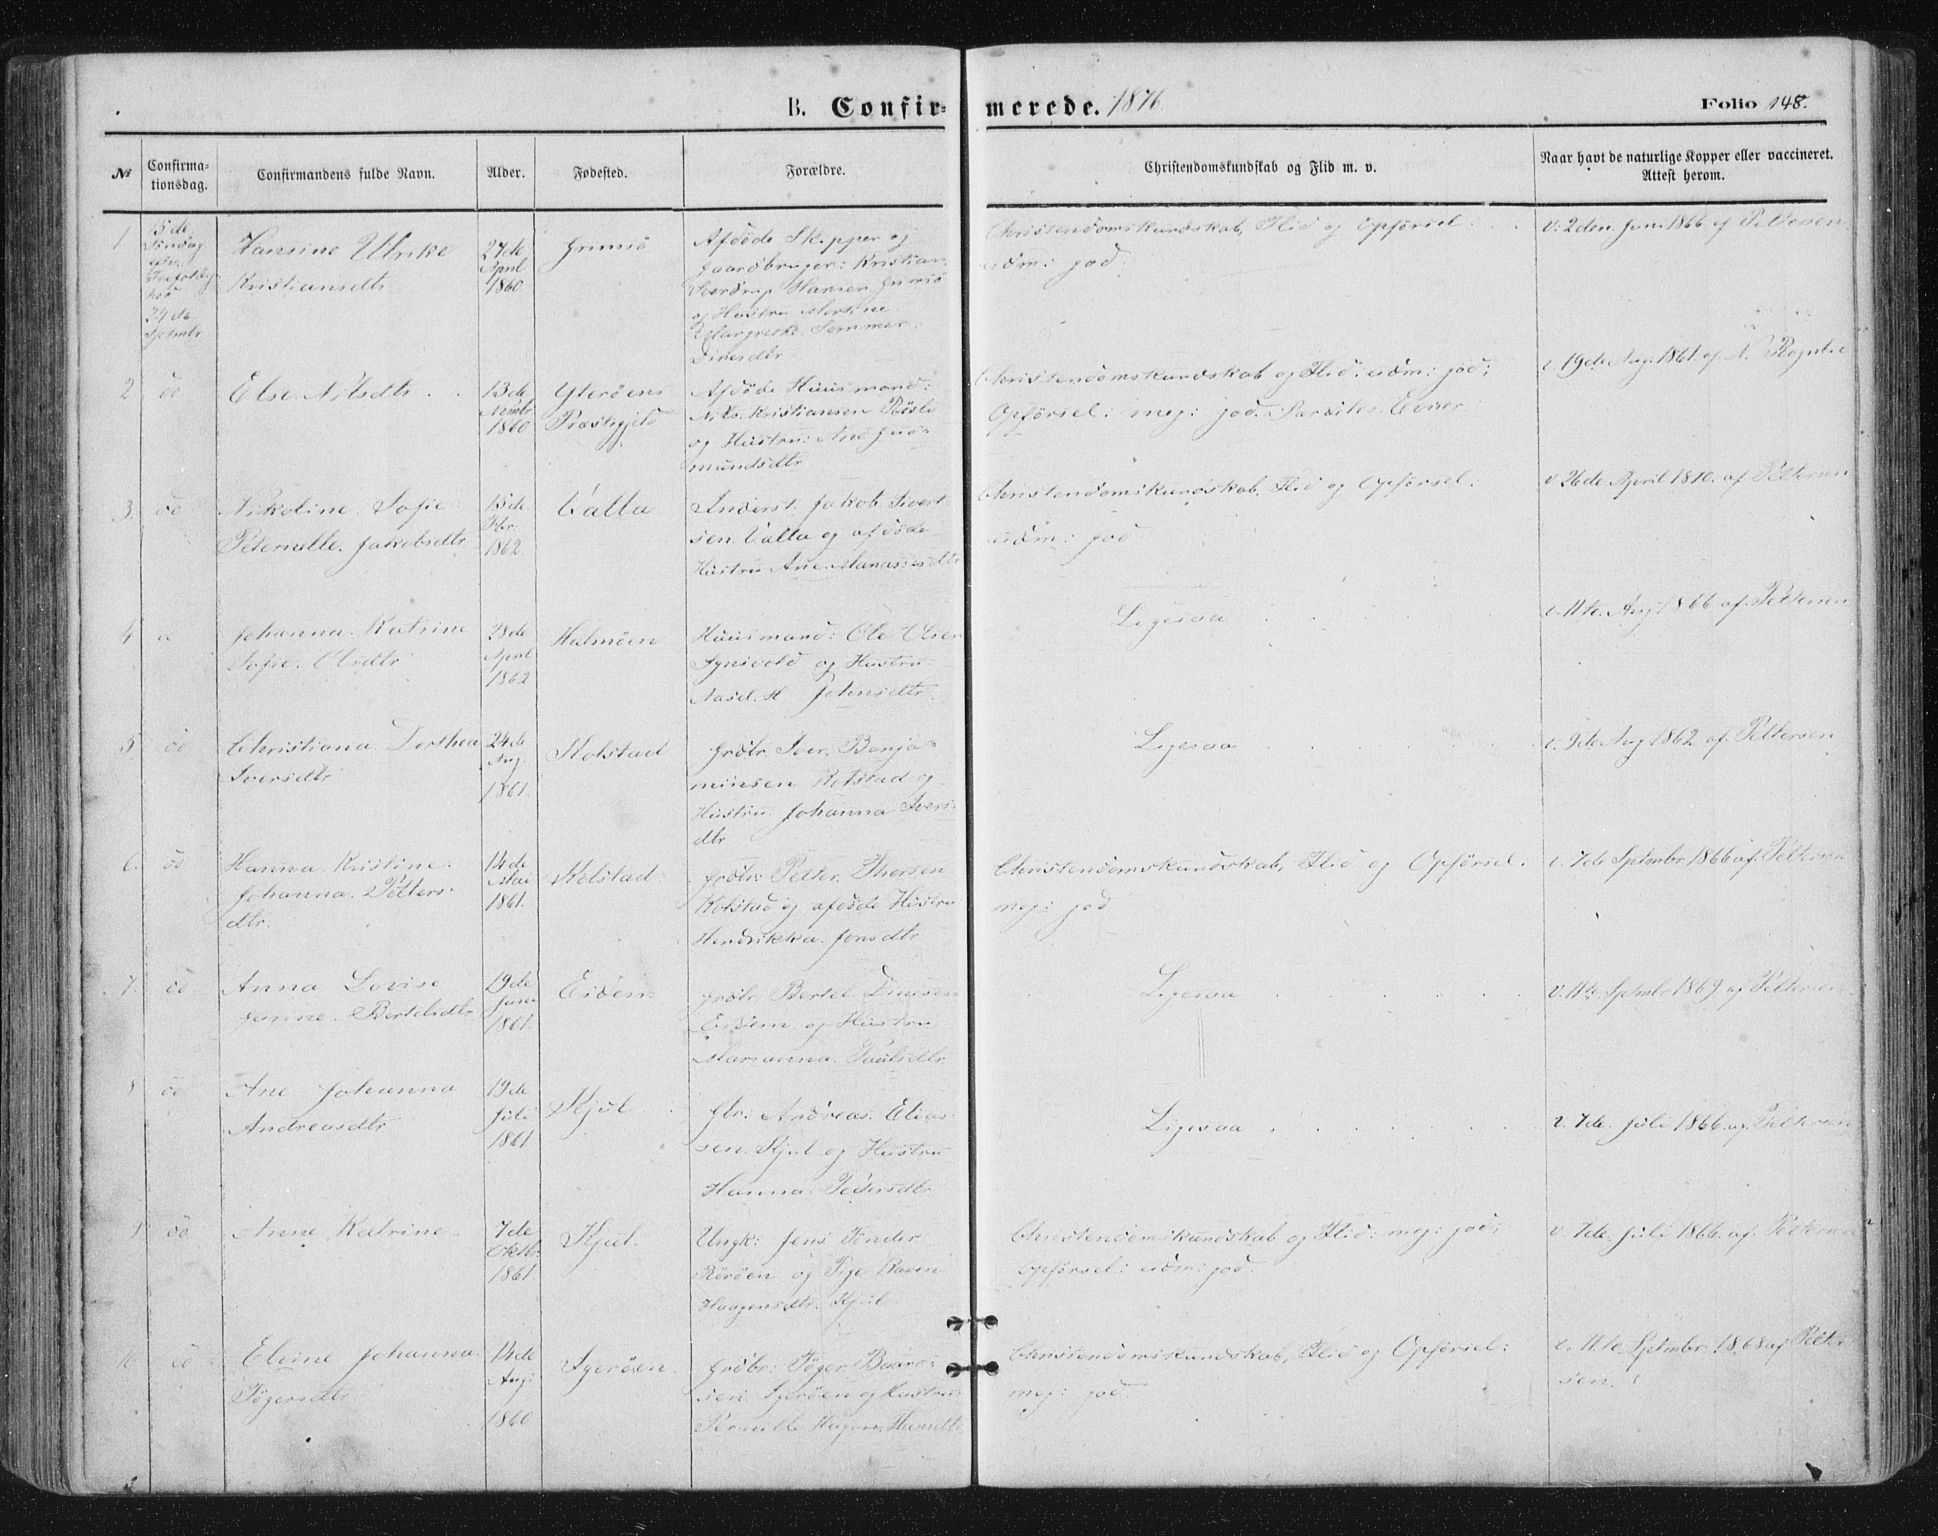 B. Confirmerede. 1876 Folio 148.
No Confirmationsdag. Confirmandens fulde Navn. Alder. Fødested. Forældre. Christendomskundskab og Flid m. v. Naar havt de naturlige Kopper eller vaccineret. Attest herom.
1 15de Søndag efter 24de Septmbr
Hansine Ulrike
Kristiansdtr
27de
April
1860
Grimsö
Afdöde Skipper og
Gaardbruger: Kristian
Hansen Grimsö
og Hustru
Sommer
Christendomskundskab, Flid og Opførsel:
udm: god.
v. 2den Juni 1866 af Peltersen
2 do
Else Nilsdtr
13de
Nvmbr
1860
Yterøens
Præstegjeld
Afdöde Huusmand:
Nils Kristiansen
og Hustru: Ane Gud-
mundsdtr
Christendomskundskab og Flid: udm: god;
Opførsel: meg: god. Evner
v. 19de Aug. 1861. af N.
3. do
Nikoline Sofie
Peternelle Jakobsdtr
15de
Fbr.
1862
Valla
Inderst: Jakob Sivert
sen Valla og afdöde
Hustru Ane Manassesdtr
Christendomskundskab, Flid og Opførsel:
udm: god
v 26de April 1870. af Peltersen
4
Johanna Katrine
Sofie Olsdtr
28de
April
1862
Halmöen
Huusmand: Ole Olsen
og Hustru
Johnsdtr
Ligesaa
v. 11te Aug: 1866 af Peltersen
5 do
Christiana Dorthea
Iversdtr
24de
Aug.
1861.
Kolstad
Grdbr Iver Benja-
minsen Kolstad og
Hustru Johanna Ivers
dtr
Ligesaa
v. 9de Aug 1862 af Peltersen
6. do
Hanna Kristine
Johanna Pelters-
dtr.
14de
Mai
1861.
Kolstad
Grdbr: Pelter
Kolstad og afdöde Hustru
Hendrikka Jonsdtr
Christendomskundskab, Flid og Opførsel.
meg: god
v. 7de Septmbr 1866 af. Peltersen
7. do
Anna Lovise
Janne Bertelsdtr
19de
Juni
1861.
Eidem
Grdbr Bertel Dinesen
Eidem og Hustru
Marianna Paulsdtr
Ligesaa
v. 11te Sptmbr 1869 af Peltersen
8 do
Ane Johanna
Andreasdtr
19de
Juli
1861
Kjul
Andreas Elias-
sen Kjul og Hustru
Hanna Pedersdtr
Ligesaa
v. 7de Juli 1866. af. Peltersen
9 do
Anne Katrine
7de
Oktbr:
1861.
Kjul.
Ungk: Jens
Rörøen og Pige Karen
Haagensdtr. Kjul
Christendomskundskab og Flid: meg: god;
Opførsel: udm: god.
v. 7de Juli 1866. af. Peltersen
10 do
Elvine Johanna
14de
Aug:
1860
Grdbr:
sen og Hustru
Pernille
Christendomskundskab, Flid og Opførsel:
meg: god
v. 11te Septmbr. 1868 af Pelter
sen.